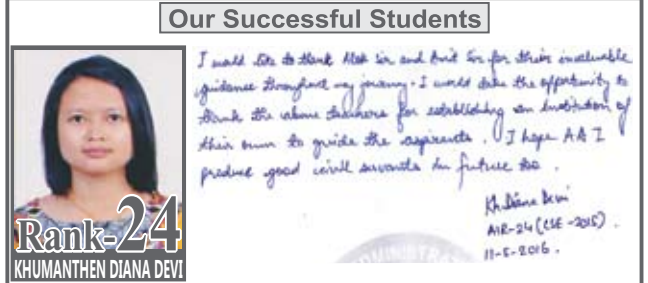 Our Successful Students
I would like to thank Alok Sir and Amit Sir for their invaluable
guidance throughout my journey. I would take the opportunity to
thank the above teachers for establishing an Institution of
their own to guide the aspirants. I hope AAI
produce good civil servants in future too.
Kh Diana Devi
AIR-24 (CSE-2015).
11-5-2016.
Rank-24
KHUMANTHEN DIANA DEVI